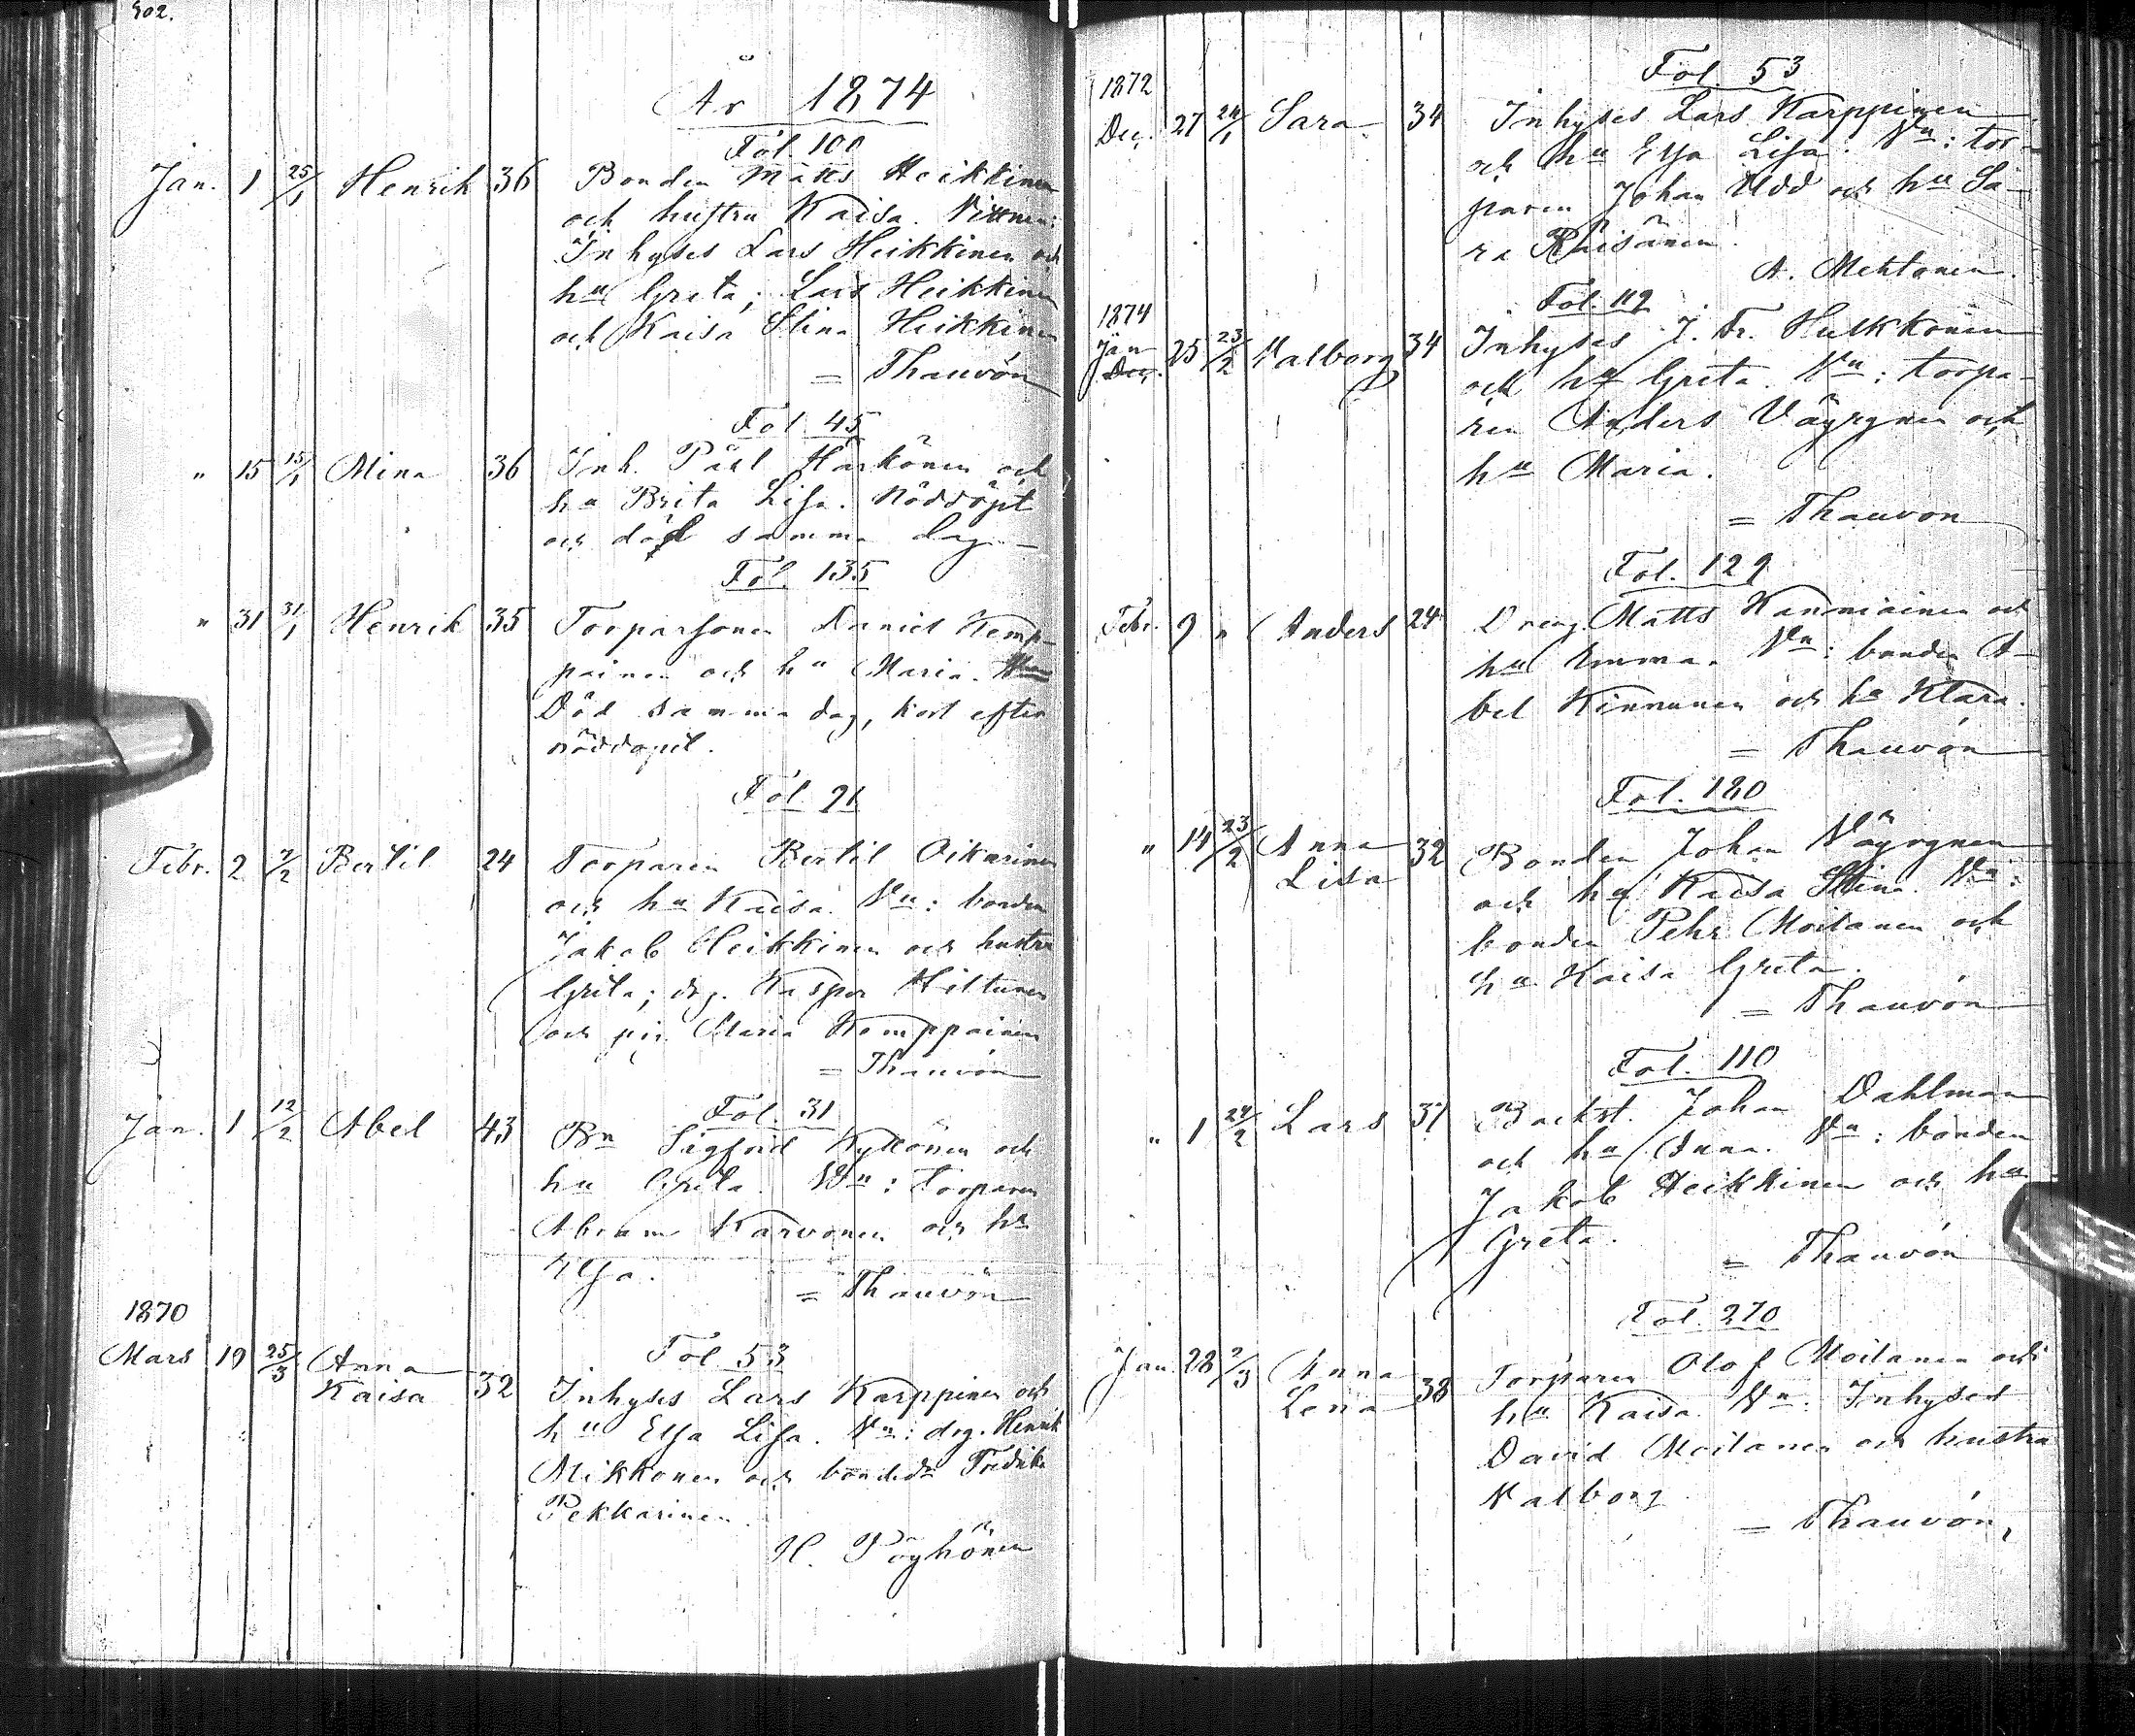 402.
År 1874
Fol. 100
Jan. 1 25/1 Henrik 36 Bonden Matts Heikkinen
och hustru Kaisa. Vittnen:
Inhyses Lars Heikkinen och
hu Greta; Lars Heikkinen
och Kaisa Stina Heikkinen
= Thauvón
Fol 45
" 15 15/1 Mina 36 Inh. Påhl Härkönen och
hu Brita Lisa. Nöddöpt
och död samma dag.
Fol. 135
" 31 31/1 Henrik 35 Torparsonen Daniel Kemp-
painen och hu Maria.
Död samma dag, kort efter
nöddopet.
Fol. 91
Febr. 2 7/2 Bertil 24 Torparen Bertil Oikarinen
och hu Kaisa. Vn: bonden
Jakob Heikkinen och hustru
Greta; drg. Kasper Hiltunen
och pig. Maria Kemppainen
= Thauvón
Fol. 31
Jan. 1 12/2 Abel 43 Bn Sigfrid Kyllönen och
hu Greta. Vn: Torparen
Abram Karvonen och hu
Elsa.
= Thauvón
1870
Fol. 53
Mars 19 25/3 Anna
Kaisa 32 Inhyses Lars Karppinen och
hu Elsa Lisa. Vn: drg. Henrik
Mikkonen och bondedr Fredrika
Pekkarinen.
H. Pöyhönen
Fol 53
1872
Dec. 27 24/1 Sara 34 Inhyses Lars Karppinen
och hu Elsa Lisa. Vn: tor-
paren Johan Udd och hu Sa-
ra Räisänen.
A. Mehtonen.
Fol. 112
1874
Jan
Dec. 25 23/2 Valborg 34 Inhyses J. Fr. Hulkkonen
och hu Greta. Vn: torpa-
ren Anders Väyrynen och
hu Maria.
= Thauvón
Fol. 129
Febr. 9 " Anders 24 Dreng. Matts Kanniainen och
hu Emma. Vn: bonden A-
bel Kinnunen och hu Klara.
= Thauvón
Fol. 180
" 14 23/2 Anna
Lisa 32 Bonden Johan Väyrynen
och hu Kaisa Stina. Vn:
bonden Pehr Moilanen och
hu Kaisa Greta.
= Thauvón
Fol. 110
" 1 24/2 Lars 37 Backst. Johan Dahlman
och hu Anna. Vn: bonden
Jakob Heikkinen och hu
Greta.
= Thauvón
Fol. 270
Jan. 28 2/3 Anna
Lena 38 Torparen Olof Moilanen och
hu Kaisa. Vn. Inhyses
David Moilanen och hustru
Valborg
= Thauvón,